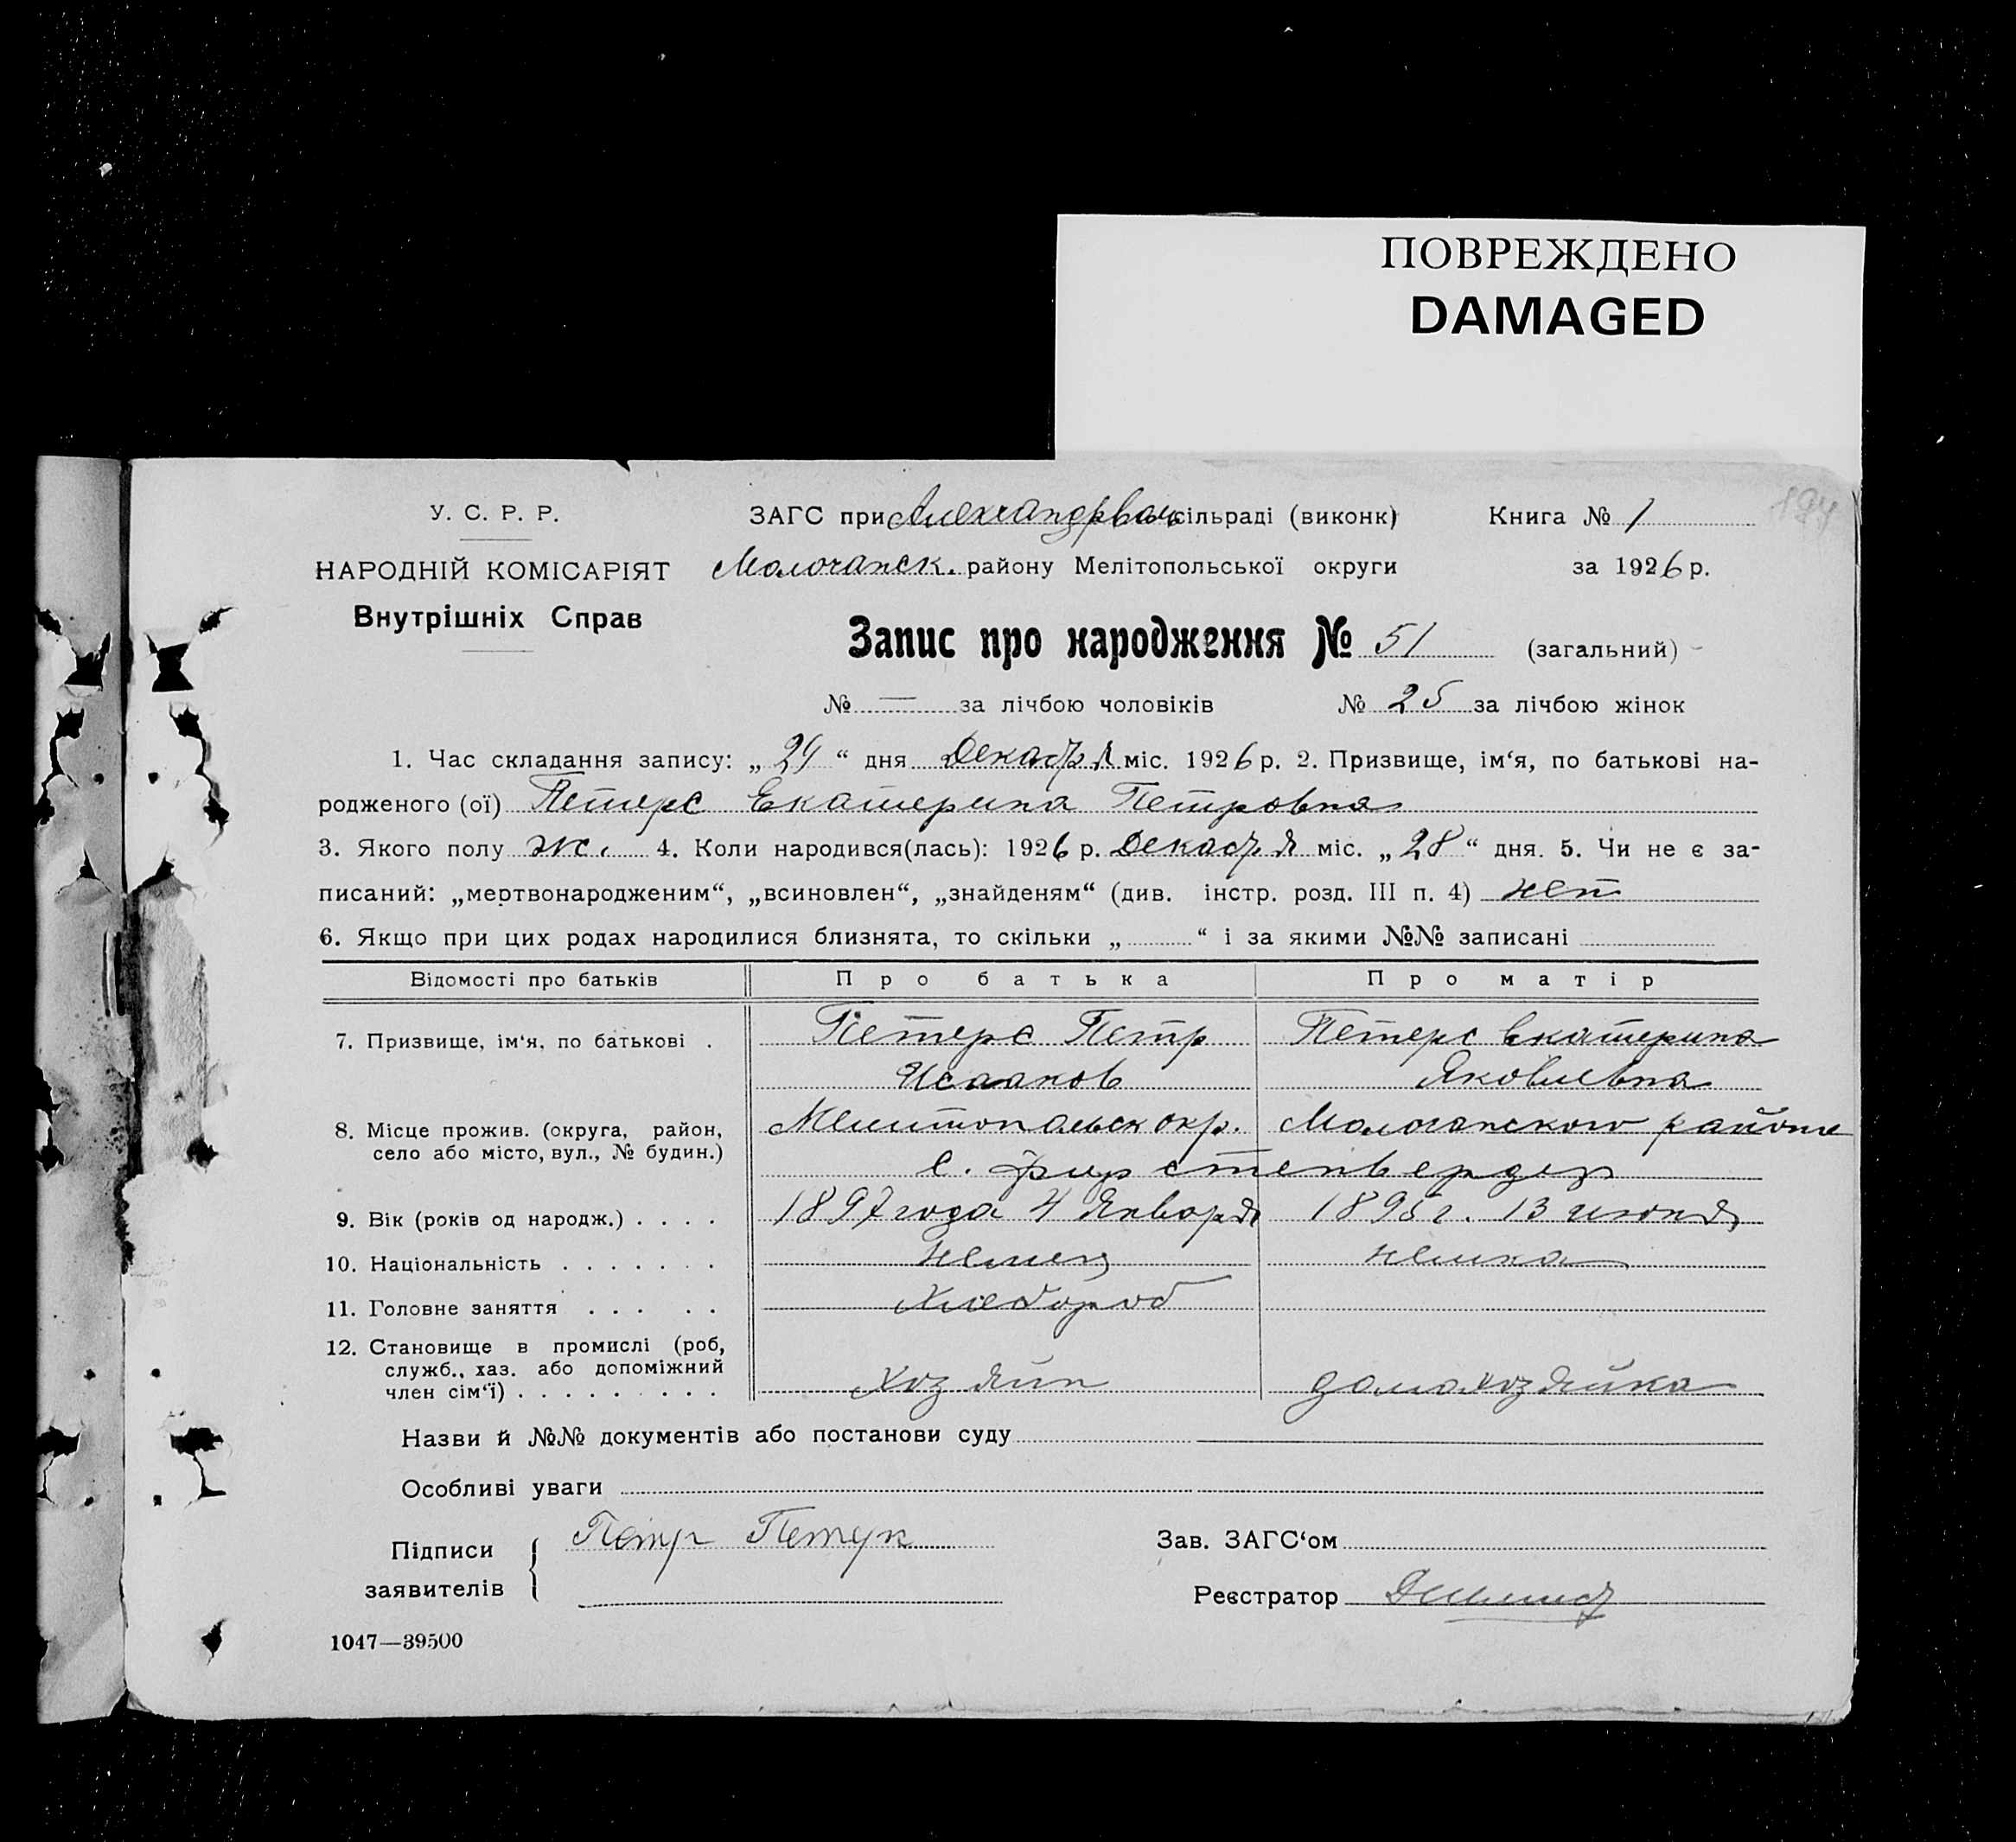 ПОВРЕЖДЕНО
DAMAGED
У. С. Р. Р.
НАРОДНІЙ КОМІСАРІЯТ
Внутрішніх Справ
ЗАГС при сільраді (виконк)
Молочанск. району Мелітопольської округи
Книга № 1
за 1926 р.
Запис про народження № 51 (загальний)
№ — за лічбою чоловіків № 25 за лічбою жінок
1. Час складання запису: „ “ дня Декабря міс. 1926 р. 2. Призвище, ім‘я, по батькові на-
родженого (ої) Петерс Екатерина Петровна
3. Якого полу ж. 4. Коли народився(лась): 1926 р. Декабря міс. „28“ дня. 5. Чи не є за-
писаний: „мертвонародженим“, „всиновлен“, „знайденям“ (див. інстр. розд. III п. 4) нет
6. Якщо при цих родах народилися близнята, то скільки „ “ і за якими №№ записані
Відомості про батьків Про батька Про матір
7. Призвище, ім‘я, по батькові . Петерс Петр Петерс Екатерина
Исааков Яковлевна
8. Місце прожив. (округа, район, Мелитопольск окр. Молочанского района
село або місто, вул., № будин.) с. Фирстенвердер
9. Вік (років од народж.) . . . . 1897 года 4 Января 1895 г. 13 июня
10. Національність . . . . . . . Немец немка
11. Головне заняття . . . . . Хлебороб
12. Становище в промислі (роб,
служб., хаз. або допоміжний
член сім‘ї) . . . . . . . . . Хозяин домохозяйка
Назви й №№ документів або постанови суду
Особливі уваги
Підписи
заявителів
Петр
Зав. ЗАГС‘ом
Реєстратор
1047—39500